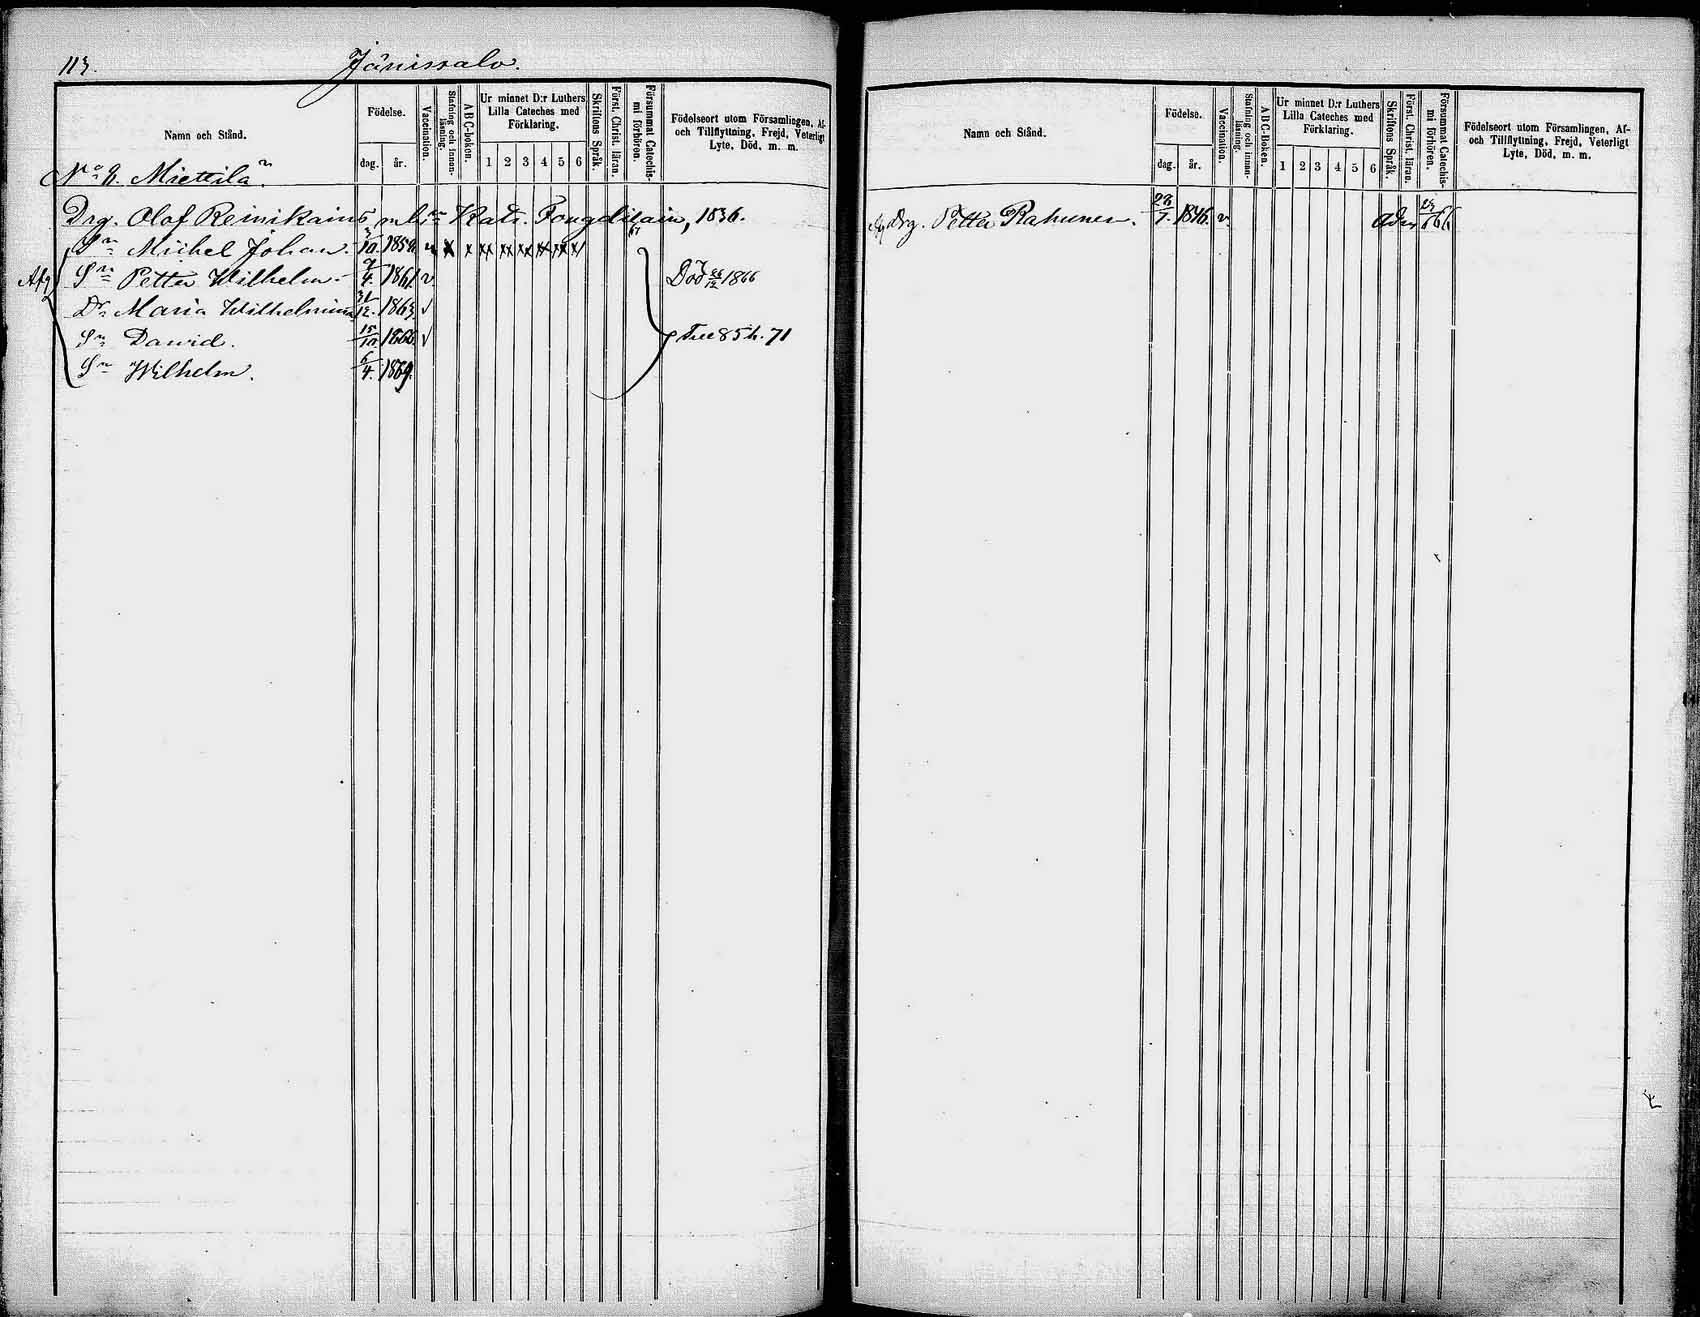 113.
Jänissalo.
Namn och Stånd.
Födelse.
dag. år.
Vaccination.
Stafning och innan-läsning.
ABC-boken.
Ur minnet D:r Luthers Lilla Cateches med Förklaring.
1 2 3 4 5 6
Skriftens Språk.
Först. Christ. läran.
Försummat Catechis-mi förhören.
Födelseort utom Församlingen, Af-
och Tillflyttning, Frejd, Veterligt
Lyte, Död, m. m.
Mietteila
Drg. Olof Reinikains m. h:ru Katr. 1836.
Sn Michel Johan. 10. 1858. v x x xx xx xx xx xx x/
Afg
Sn Petter Wilhelm. 4. 1861. v Död 26/12 1866
Dr Maria Wilhelmina 31/12. 1863. v
Sn Dawid. 15/10 1866. v 85 h. 71
Sn Wilhelm. 6/4. 1869.
Namn och Stånd.
Födelse.
dag. år.
Vaccination.
Stafning och innan-läsning.
ABC-Boken.
Ur minnet D:r Luthers Lilla Cateches med Förklaring.
1 2 3 4 5 6
Skriftens Språk.
Först. Christ. läran.
Försummat Catechis-mi förhören.
Födelseort utom Församlingen, Af-
och Tillflyttning, Frejd, Veterligt
Lyte, Död, m. m.
Drg. Petter Rahunen. 1846. v. 66